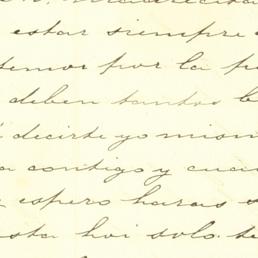 estar siempre
temor por la
deben tantos
decirte yo mism
contigo y cua
espero haras
esta hoi solo te